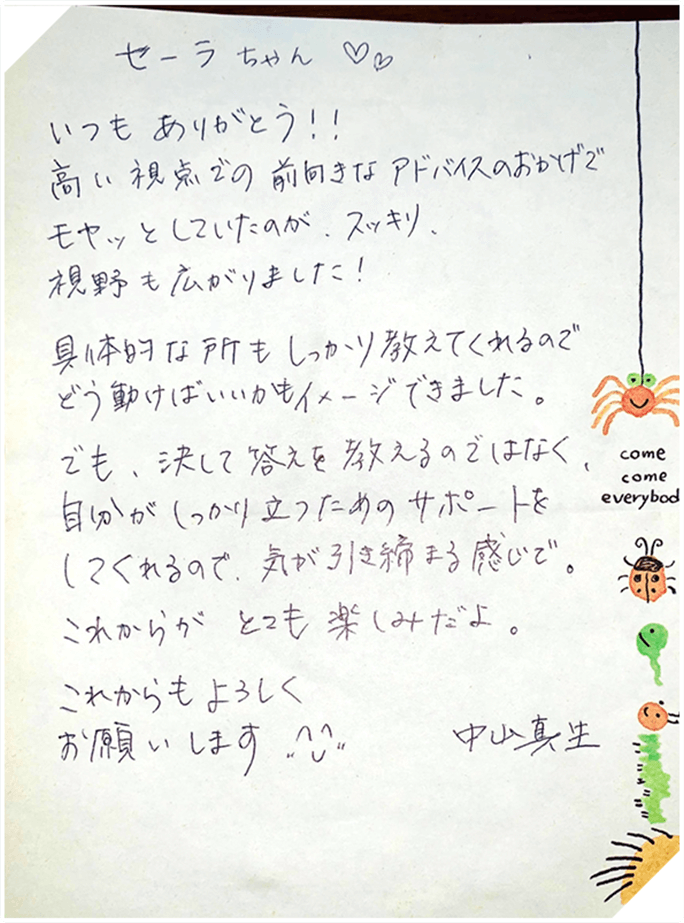 せーラちゃん ♡♡
いつも ありがとう!!
高い視点での前向きなアドバイスのおかげで
モヤッとしていたのが、スッキリ、
視野も広がりました!
具体的な所もしっかり教えてくれるので
どう動けばいいかもイメージできました。
でも、決して答えを教えるのではなく、
自分がしっかり立つためのサポートを
してくれるので、気が引き締まる感じで。
これからが とても楽しみだよ。
これからもよろしく
お願いします
中山真生
come
come
everybod